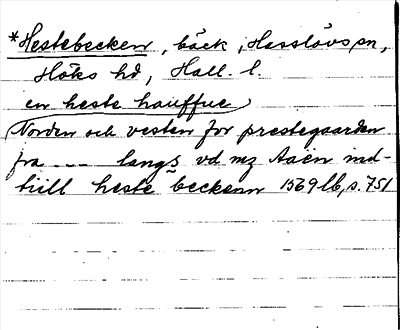 *Hestebecken, bäck, Hasslövs sn,
Höks hd, Hall. l.
en heste hauffue
(Norden och vesten for prestegaarden
fra --- langs vd mz Aaen ind-
till heste beckenn 1569 lb, s. 751